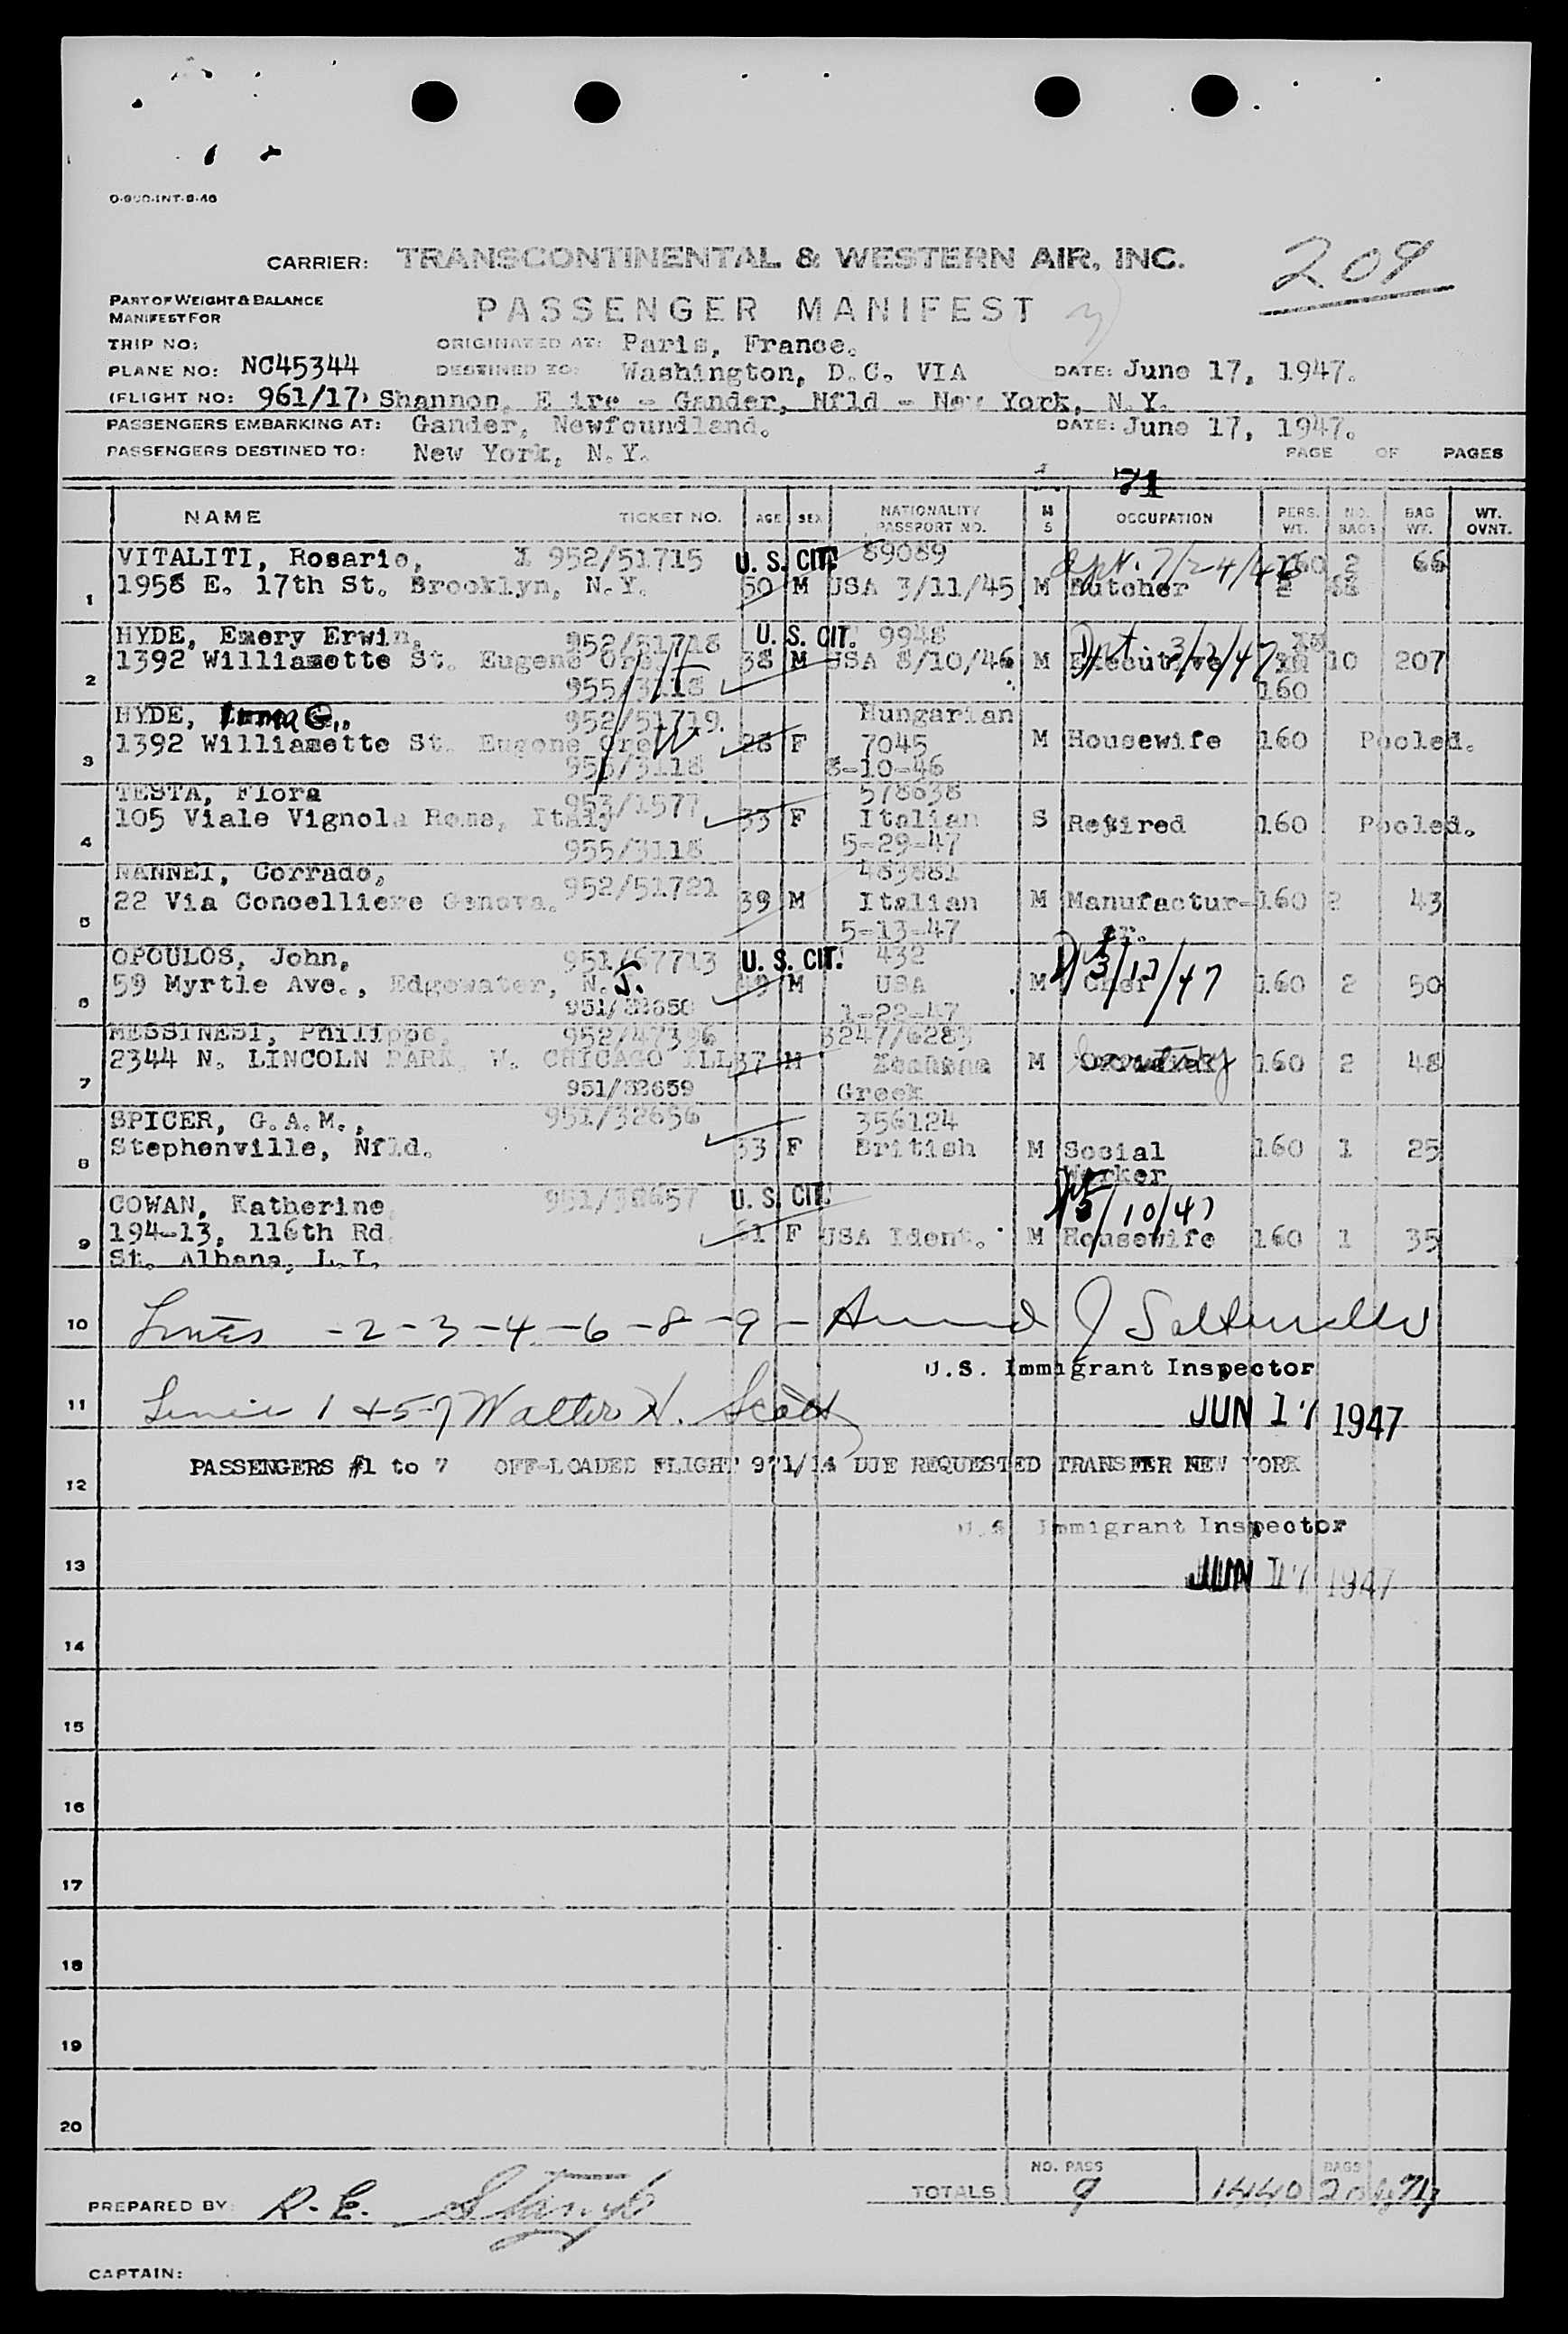 O-900-INT-8-46
CARRIER: TRANSCONTINENTAL & WESTERN AIR, INC.
209
PART OF WEIGHT & BALANCE
MANIFEST FOR
PASSENGER MANIFEST
TRIP NO: ORIGINATED AT: Paris, France.
PLANE NO: NC45344 DESTINED TO: Washington, D.C. VIA DATE: June 17, 1947.
(FLIGHT NO: 961/17) Shannon, E ire - Gander, Nfld - New York, N.Y.
PASSENGERS EMBARKING AT: Gander, Newfoundland. DATE: June 17, 1947.
PASSENGERS DESTINED TO: New York, N.Y. PAGE OF PAGES
71
NAME TICKET NO. AGE SEX NATIONALITY PASSPORT NO. M S OCCUPATION PERS. WT. NO. BAGS BAG WT. WT. OVNT.
VITALITI, Rosario, 952/51715 U. S. CIT. 89089 7/24/46 160 2 66
1 1958 E. 17th St. Brooklyn, N.Y. 50 M USA 3/11/45 M Butcher
HYDE, Emery Erwin, 952/51718 U. S. CIT. 9948 Dpt 3/2/47
1392 Williamette St. Eugene Ore. 38 M USA 8/10/46 M Executive 10 207
2 955/3118 160
HYDE, 952/51719. Hungarian
1392 Williamette St. Eugene Ore 28 F 7045 M Housewife 160 Pooled.
3 955/3118 8-10-46
TESTA, Flora 953/1577 578638
105 Viale Vignola Roma, Italy 33 F Italian S Retired 160 Pooled.
4 955/3118 5-29-47
NANNEI, Corrado, 952/51721 483881
22 Via Concelliere Genova. 39 M Italian M Manufactur- 160 2 43
5 5-13-47 er.
OPOULOS, John, 951/67713 U. S. CIT. 432
59 Myrtle Ave., Edgewater, N.J. 49 M USA M Chef 160 2 50
6 951/32650 1-22-47
MESSINESI, Philippo, 952/47396 3247/6283
2344 N. LINCOLN PARK W. CHICAGO ILL 37 M M 160 2 48
7 951/32659 Greek
SPICER, G.A.M., 951/32656 356124
Stephenville, Nfld. 33 F British M Social 160 1 25
8 Worker
COWAN, Katherine 951/32657 U. S. CIT. 3/10/47
9 194-13, 116th Rd. 61 F USA Ident. M Housewife 160 1 35
St. Albans, L.I.
10 Lines - 2 - 3 - 4 - 6 - 8 - 9 -
U.S. Immigrant Inspector
11 1 + 5-7 Walter H. Scott JUN 17 1947
PASSENGERS #1 to 7 OFF-LOADED FLIGHT 971/14 DUE REQUESTED TRANSFER NEW YORK
12
U.S. Immigrant Inspector
13 JUN 17 1947
14
15
16
17
18
19
20
NO. PASS BAGS
PREPARED BY: R. E. TOTALS 9 1440
CAPTAIN: